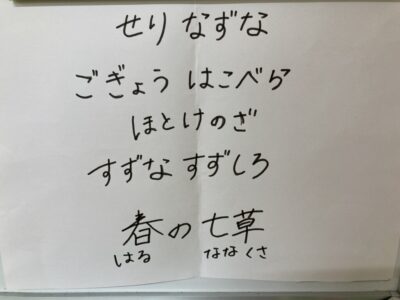 せり なずな
ごぎょう はこべら
ほとけのざ
すずな すずしろ
春の七草
はる ななくさ